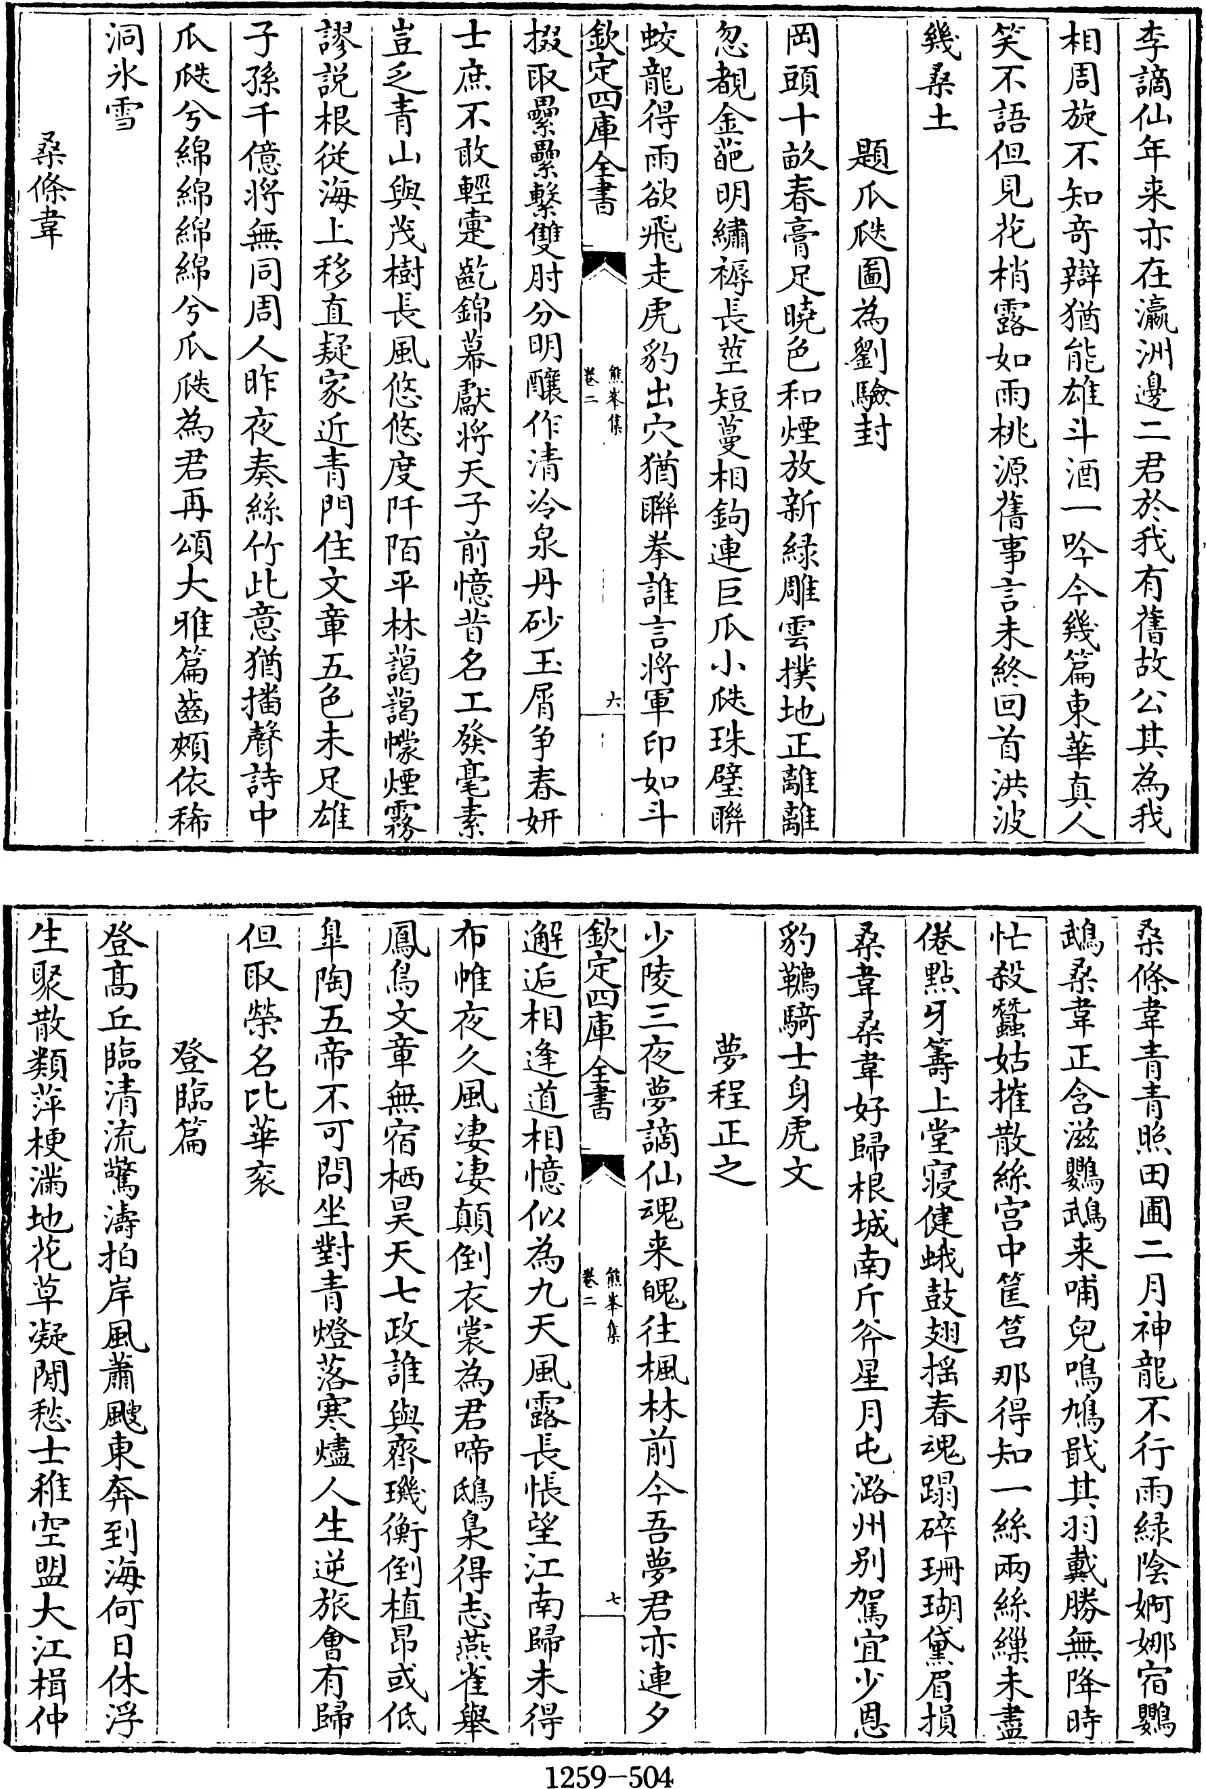 李謫仙年来亦在瀛洲邊二君於我有舊故公其為我
相周旋不知奇辯猶能雄斗酒一吟今幾篇東華真人
笑不語但見花梢露如雨桃源舊事言未終回首洪波
幾桑土
題瓜瓞圖為劉驗封
岡頭十畝春膏足曉色和煙放新緑雕雲撲地正離離
忽覩金葩明繡褥長莖短蔓相鉤連巨瓜小瓞珠璧聯
蛟龍得雨欲飛走虎豹出穴猶聯拳誰言將軍印如斗
欽定四庫全書
熊峯集
卷二
六
掇取纍纍繫雙肘分明釀作清冷泉丹砂玉屑争春妍
士庶不敢輕疐齕錦幕獻将天子前憶昔名工發毫素
豈乏青山與茂樹長風悠悠度阡陌平林藹藹幪煙霧
謬説根從海上移直疑家近青門住文章五色未足雄
子孫千億将無同周人昨夜奏絲竹此意猶播聲詩中
瓜瓞兮綿綿綿綿兮瓜瓞為君再頌大雅篇齒頰依稀
洞氷雪
桑條韋
桑條韋青青照田圃二月神龍不行雨緑陰婀娜宿鸚
鵡桑韋正含滋鸚鵡来哺兒鳴鳩戢其羽戴勝無降時
忙殺蠶姑摧散絲宫中筐筥那得知一絲兩絲繅未盡
倦點牙籌上堂寝健蛾鼓翅揺春魂蹋碎珊瑚黛眉損
桑韋桑韋好歸根城南斤斧星月屯潞州别駕宜少恩
豹韀騎士身虎文
夢程正之
少陵三夜夢謫仙魂来魄往楓林前今吾夢君亦連夕
欽定四庫全書
熊峯集
卷二
七
邂逅相逢道相憶似為九天風露長悵望江南歸未得
布帷夜久風凄凄顛倒衣裳為君啼鴟梟得志燕雀舉
鳳鳥文章無宿栖昊天七政誰與齊璣衡倒植昂或低
臯陶五帝不可問坐對青燈落寒燼人生逆旅會有歸
但取榮名比華衮
登臨篇
登髙丘臨清流驚濤拍岸風蕭颼東奔到海何日休浮
生聚散類萍梗滿地花草凝閒愁士稚空盟大江楫仲
1259-504